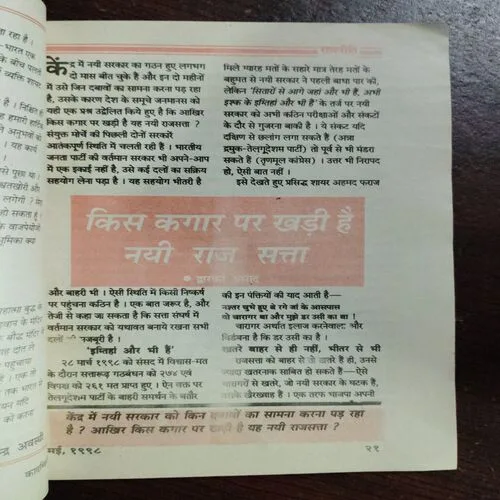 राजनीति
केंद्र में नयी सरकार का गठन हुए लगभग
दो मास बीत चुके हैं और इन दो महीनों
में उसे जिन दबावों का सामना करना पड़ रहा
है, उसके कारण देश के समूचे जनमानस को
यही एक प्रश्न उद्वेलित किये हुए है कि आखिर
किस कगार पर खड़ी है यह नयी राजसत्ता ?
संयुक्त मोर्चे की पिछली दोनों सरकारें
आतंकपूर्ण स्थिति में चलती रही हैं । भारतीय
जनता पार्टी की वर्तमान सरकार भी अपने-आप
में एक इकाई नहीं है, उसे कई दलों का सक्रिय
सहयोग लेना पड़ा है । यह सहयोग भीतरी है
मिले ग्यारह मतों के सहारे मात्र तेरह मतों के
बहुमत से नयी सरकार ने पहली बाधा पार की,
लेकिन 'सितारों से आगे जहां और भी हैं, अभी
इश्क के इम्तिहां और भी हैं' के तर्ज पर नयी
सरकार को अभी कठिन परीक्षाओं और संकटों
के दौर से गुजरना बाकी है । ये संकट यदि
दक्षिण से छलांग लगा सकते हैं (अन्ना
द्रमुक-तेलगूदेशम पार्टी) तो पूर्व से भी मंडरा
सकते हैं (तृणमूल कांग्रेस) । उत्तर भी निरापद
हो, ऐसी बात नहीं ।
इसे देखते हुए प्रसिद्ध शायर अहमद फराज
किस कगार पर खड़ी है
नयी राज सत्ता
और बाहरी भी । ऐसी स्थिति में किसी निष्कर्ष
पर पहुंचना कठिन है । एक बात जरूर है, और
तेजी से कहा जा सकता है कि सत्ता संघर्ष में
वर्तमान सरकार को यथावत बनाये रखना सभी
दलों की मजबूरी है ।
'इम्तिहां और भी हैं'
२८ मार्च १९९८ को संसद में विश्वास-मत
के दौरान सत्तारूढ़ गठबंधन को २७४ एवं
विपक्ष को २६१ मत प्राप्त हुए । ऐन वक्त पर
तेलगूदेशम पार्टी के बाहरी समर्थन के बतौर
की इन पंक्तियों की याद आती है—
नश्तर चुभे हुए थे रगे जां के आसपास
वो चारागर था और मुझे डर उसी का था !
चारागर अर्थात इलाज करनेवाला और
विडंबना है कि डर उसी का है ।
खतरे बाहर से ही नहीं, भीतर से भी
खतरे बाहर से तो खतरे हैं ही, उनसे
ज्यादा खतरनाक साबित हो सकते हैं—ऐसे
चारागरों से खतरे, जो नयी सरकार के घटक हैं,
उसके खैरख्वाह हैं । एक तरफ भाजपा अपनी
केंद्र में नयी सरकार को किन दबावों का सामना करना पड़ रहा
है ? आखिर किस कगार पर खड़ी है यह नयी राजसत्ता ?
मई, १९९८
२१